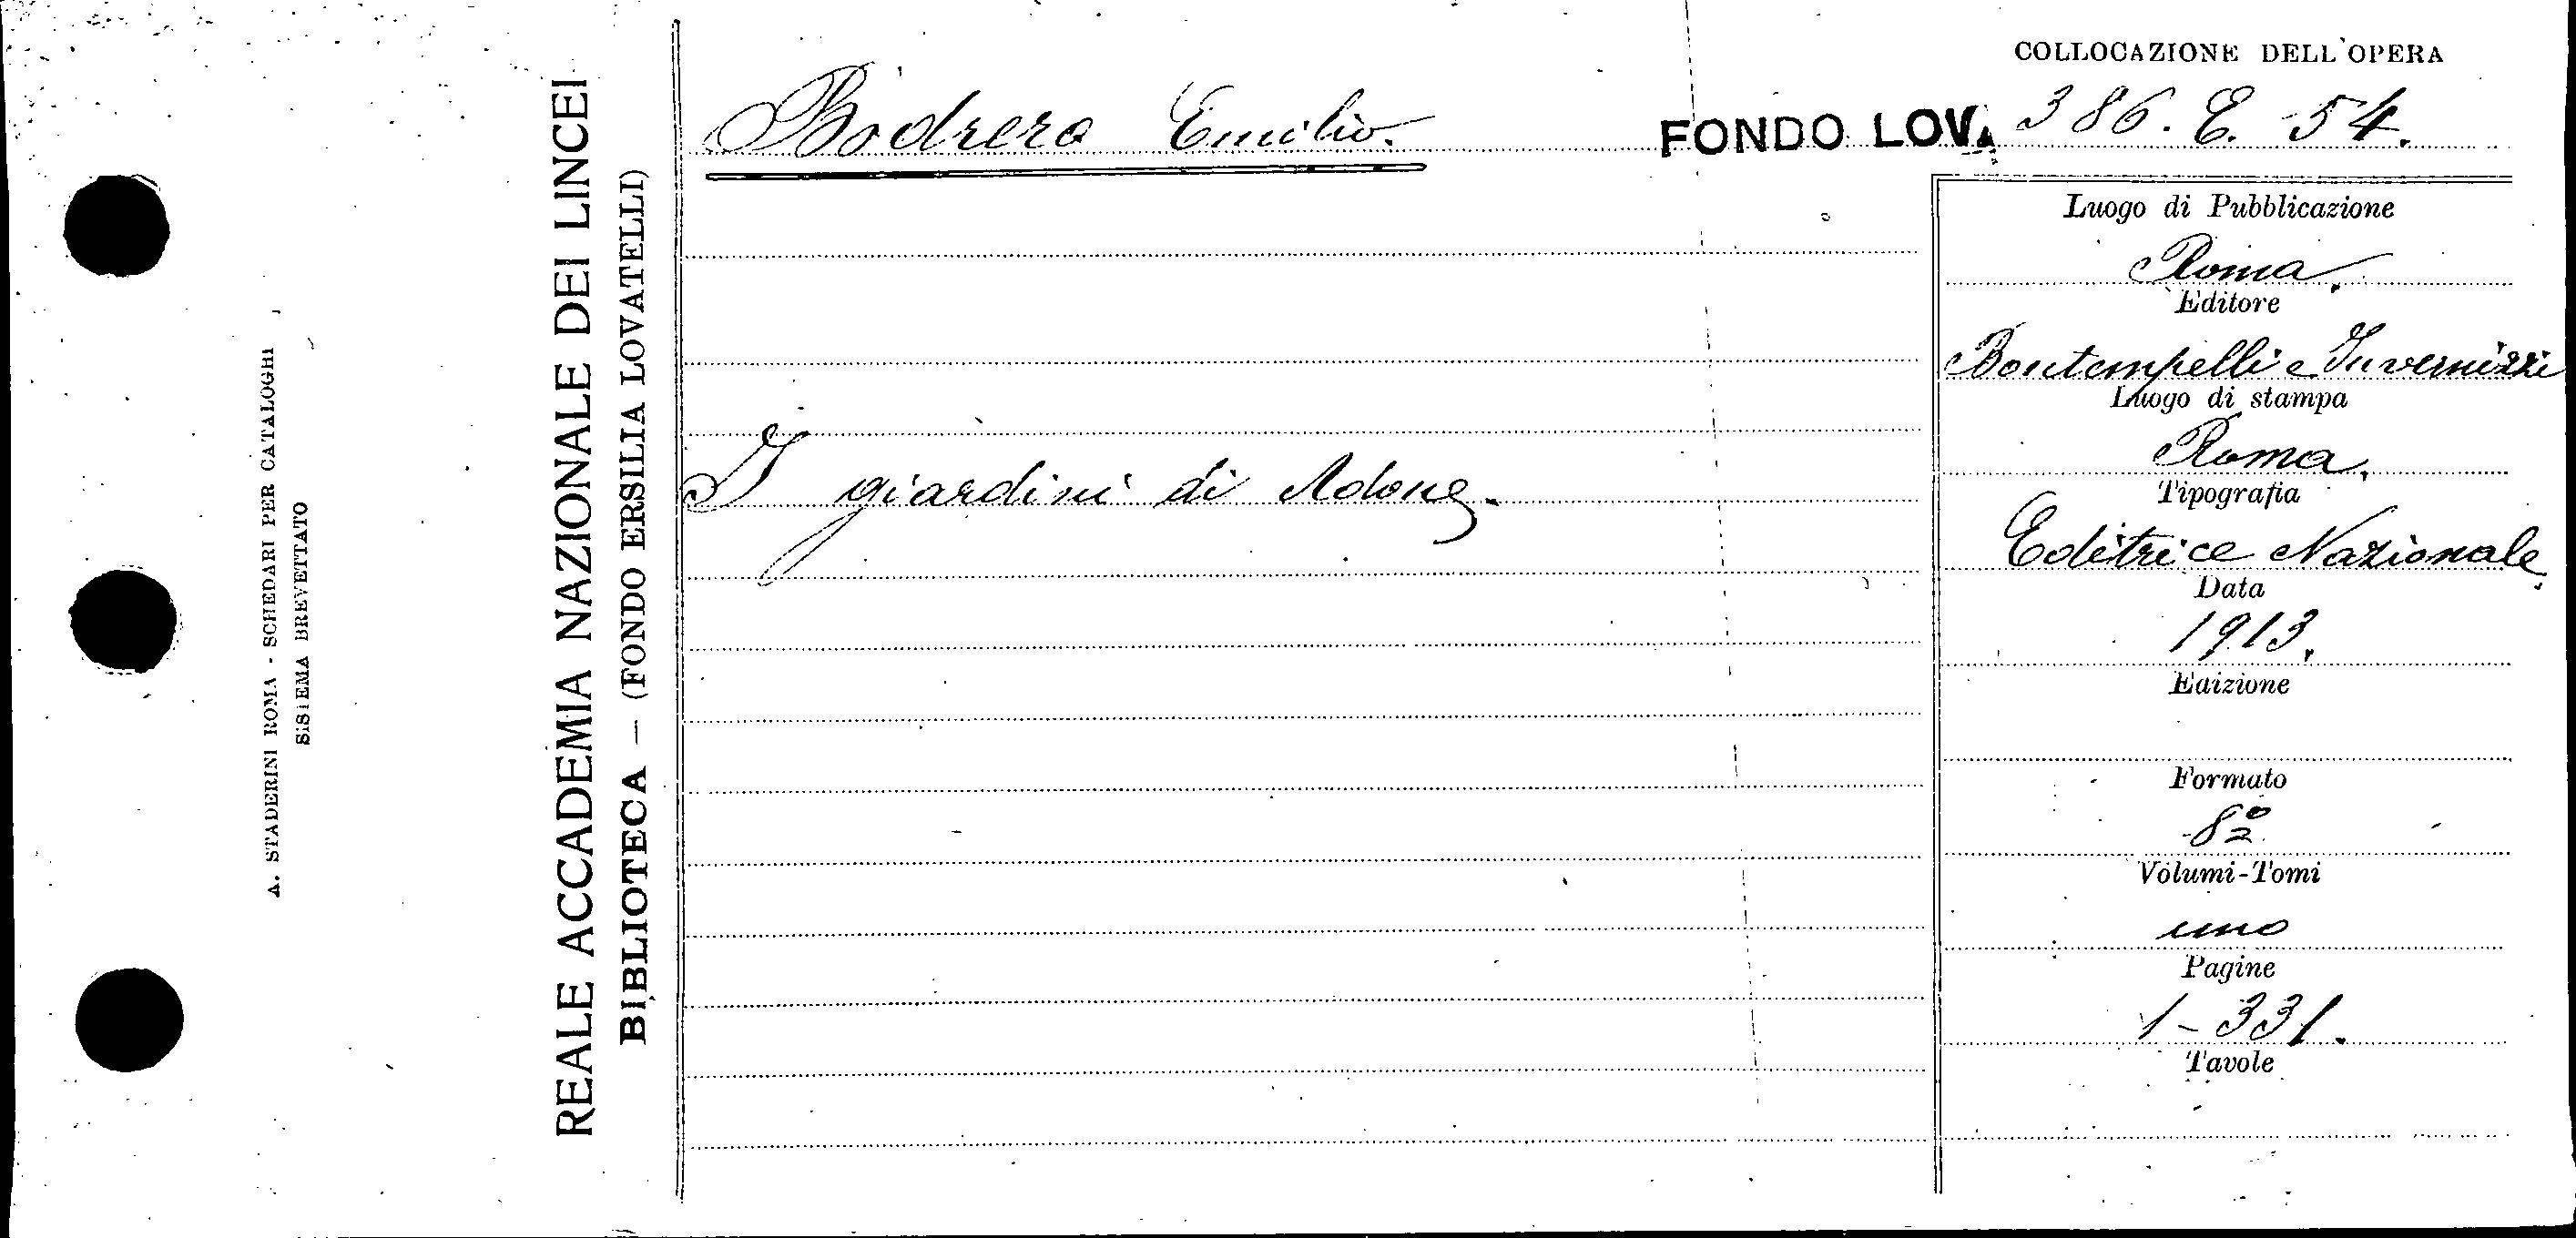 A. STADERINI ROMA - SCHEDARI PER CATALOGHI
SISTEMA BREVETTATO
REALE ACCADEMIA NAZIONALE DEI LINCEI
BIBLIOTECA — (FONDO ERSILIA LOVATELLI)
COLLOCAZIONE DELL'OPERA
Bodrero Emilio.
FONDO LOV. 386. E. 54.
I giardini di Adone.
Luogo di Pubblicazione
Roma.
Editore
Bontempelli e Invernizzi
Luogo di stampa
Roma.
Tipografia
Editrice Nazionale.
Data
1913.
Edizione
Formato
8º
Volumi-Tomi
uno
Pagine
1-331.
Tavole